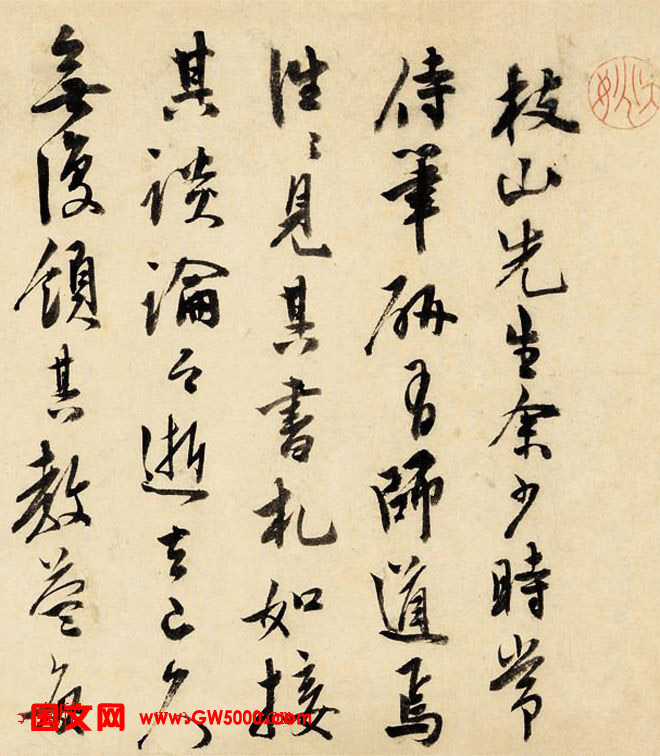 枝山先生余少時常
侍筆研有師道焉
往〻見其書札如接
其談論今逝去已久
無復領其教益每
图文网 www.GW5000.com